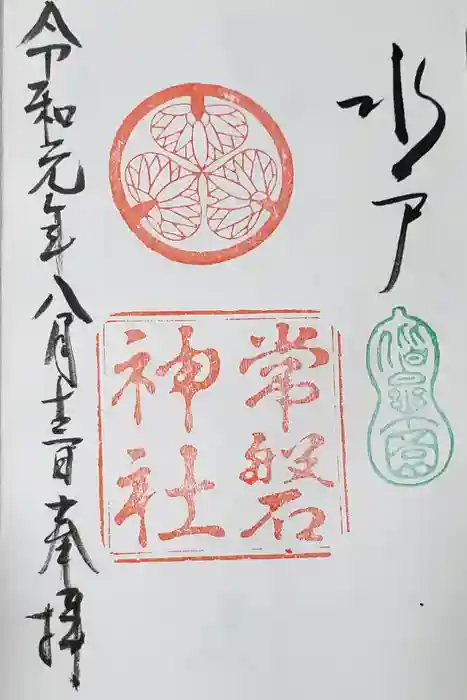 水戸
偕楽園
常磐
神社
令和元年八月十三日奉拝